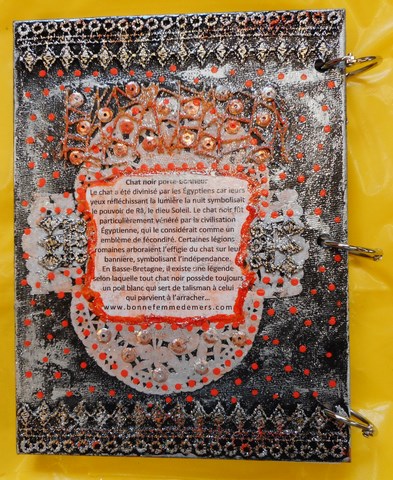 Chat noir porte-bonheur
Le chat a été divinisé par les Egyptiens car leurs
yeux réfléchissant la lumière la nuit symbolisait
le pouvoir de Râ, le dieu Soleil. Le chat noir fût
particulièrement vénéré par la civilisation
Égyptienne, qui le considérait comme un
emblème de fécondité. Certaines légions
romaines arboraient l'effigie du chat sur leur
banniere, symbolisant l'indépendance.
En Basse-Bretagne, il existe une légende
selon laquelle tout chat noir possède toujours
un poil blanc qui sert de talisman à celui
qui parvient à l'arracher...
www.bonnefemmedemers.com